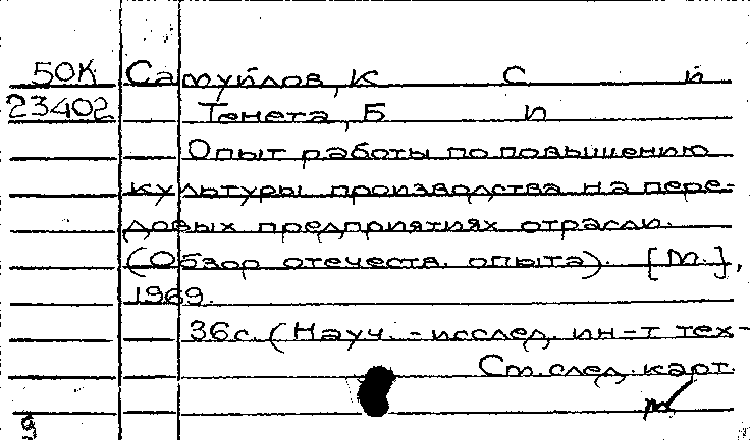 50К Самуйлов, К С и
23402 Тенета, Б И
Опыт работы по повышению
культуры производства на пере-
довых предприятиях отрасли.
(Обзор отечеств. опыта). [М.],
1969.
36с. (Науч.-исслед. ин-т тех-
См. след. карт.
9